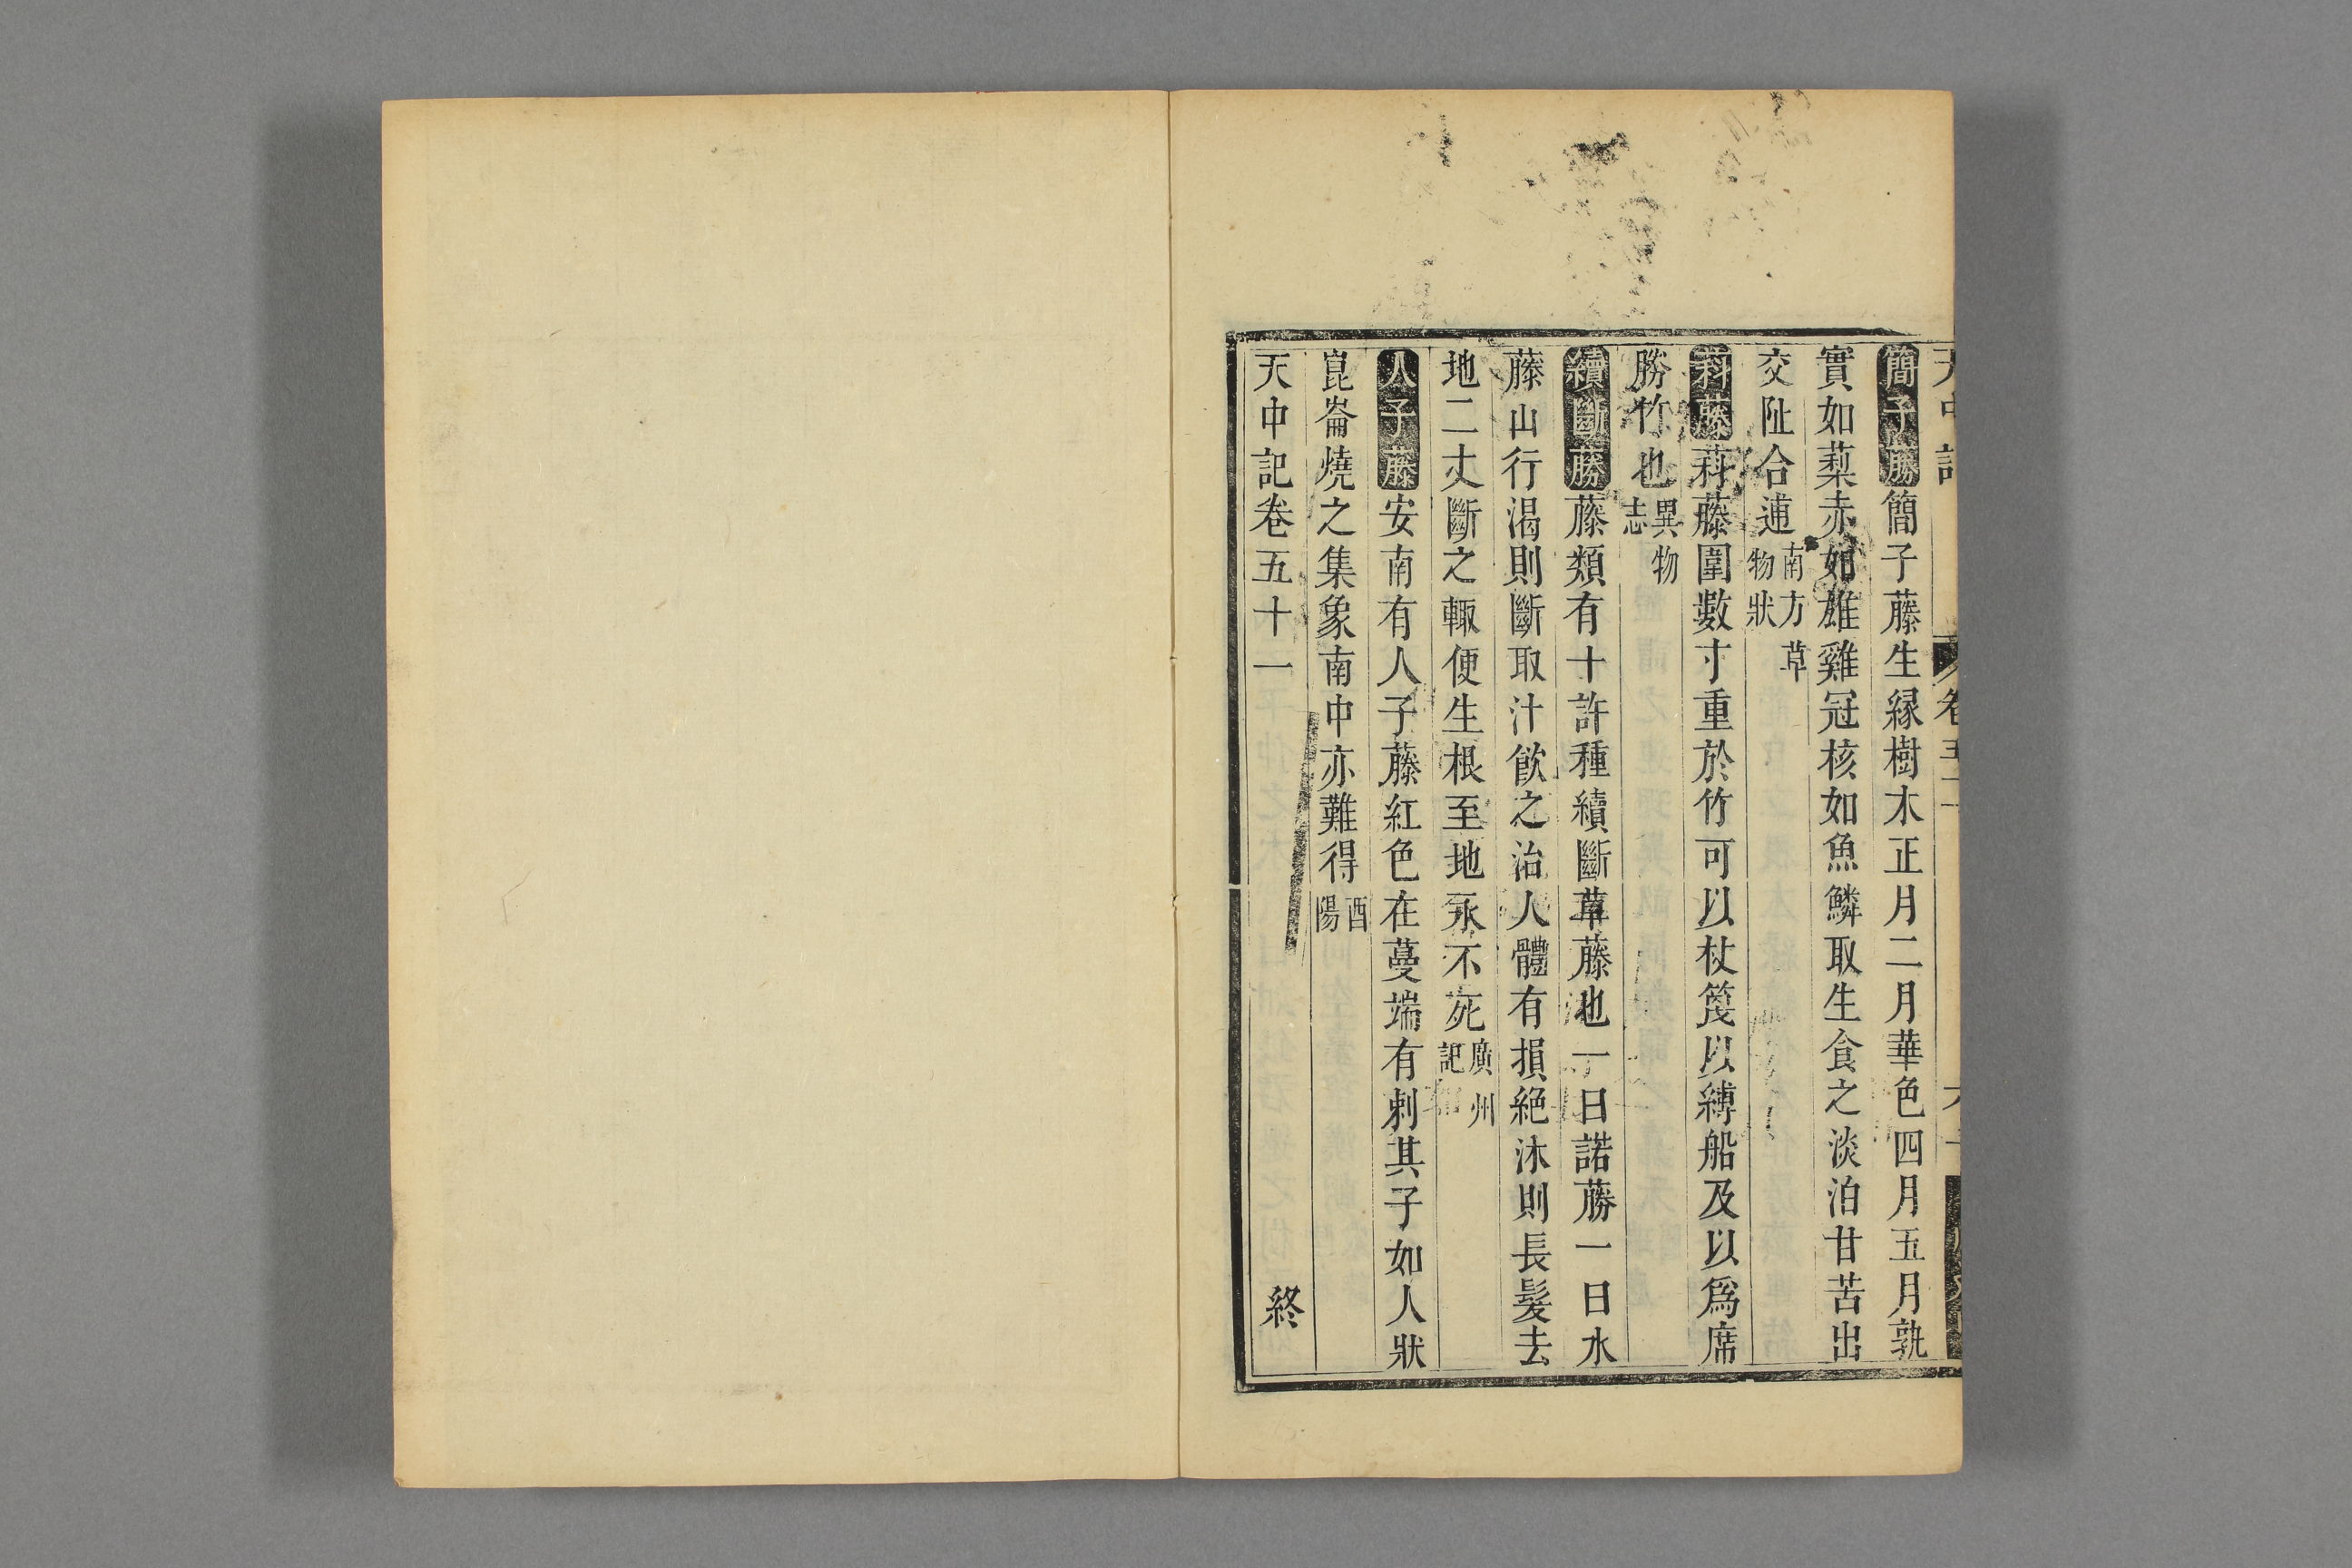 天中記 卷五十一
簡子藤簡子藤生縁樹木正月二月華色四月五月孰
實如蔾赤如雄雞冠核如魚鱗取生食之淡泊甘苦出
交阯合逋南方草物狀
科藤科藤圍數寸重於竹可以杖篾以縛船及以爲席
勝竹也異物志
續斷藤藤類有十許種續斷草藤也一曰諾藤一曰水
藤山行渴則斷取汁飲之治人體有損絕沐則長髮去
地二丈斷之輙便生根至地永不死廣州記
人子藤安南有人子藤紅色在蔓端有刺其子如人狀
崑崙燒之集象南中亦難得酉陽
天中記卷五十一 終